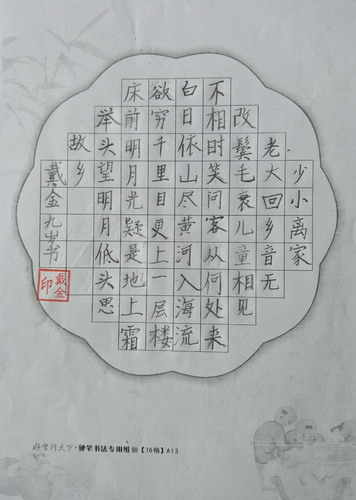 少小离家
老大回乡音无
改鬓毛衰儿童相见
不相时笑问客从何处来
白日依山尽黄河入海流
欲穷千里目更上一层楼
床前明月光疑是地上霜
举头望明月低头思
故乡
戴金九岁书
戴金印
好字行天下·硬笔书法专用纸【76格】A13